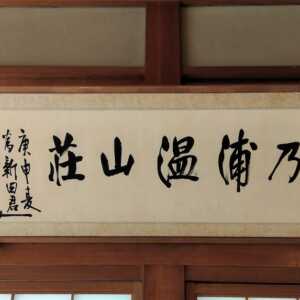 乃浦温山荘
庚申夏
為新田君